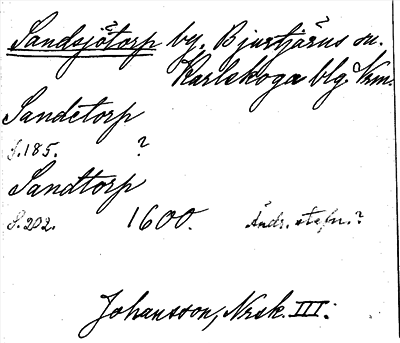 Sandsjötorp by, Bjurtjärns sn.
Karlskoga blg Vrm.
Sandetorp
s. 185. ?
Sandtorp
S. 202. 1600. Ändr. stafn.?
Johansson, Nrsk. III: